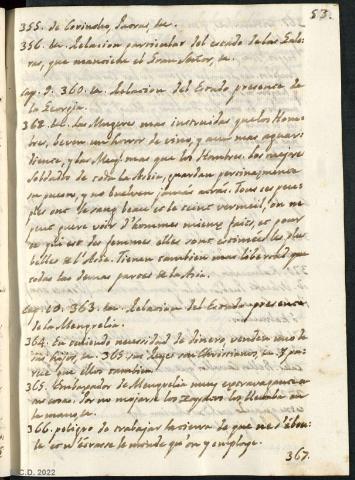 53.
355. de Corintho, Patras, &c.
356. &c. Relacion particular del estado de las Gale-
ras, que mantiene el Gran Señor, &c.
cap. 9. 360. &c. Relacion del Estado presente de
la Georgia.
362. &c. las Mugeres mas instruidas que los Hom-
bres, beven un horror de vino, y aun mas aguar-
diente, y las Mug. mas que los Hombres. los mejores
Soldados de toda la Asia, guardan
su puesto, y no buelven jamàs atràs. Tous ces peu-
ples ont le sang beau et le teint vermeil, on ne
peut guere voir d'hommes mieux faits, et pour
ce qui est des femmes elles sont estimées les plus
belles de l'Asie. Tienen tambien mas libertad que
todas las demas partes de la Asia.
cap. 10. 363. &c. Relacion del Estado presente
de la Mengrelia.
364. En teniendo necessidad de dinero, venden uno de
sus hijos, &c. 365. su Rey son Christianos, &c.
que ellos tambien.
365. Embaxador de Mengrelia muy extravagante
cosa. Por no mojarse los zapatos los llevaba en
la mano, &c.
366. peligro de trabajar la tierra de que
le monde qu'on y employe.
367.
C.D. 2022